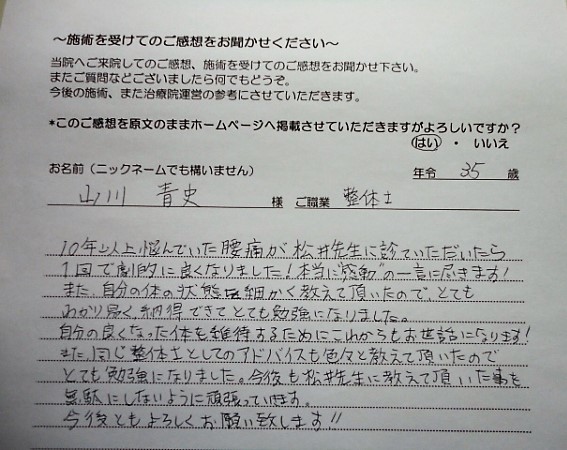 ～施術を受けてのご感想をお聞かせください～
当院へご来院してのご感想、施術を受けてのご感想をお聞かせ下さい。
またご質問などございましたら何でもどうぞ。
今後の施術、また治療院運営の参考にさせていただきます。
*このご感想を原文のままホームページへ掲載させていただきますがよろしいですか？
はい ・ いいえ
お名前（ニックネームでも構いません） 年令 35 歳
山川 青史 様 ご職業 整体士
10年以上悩んでいた腰痛が松井先生に診ていただいたら
1回で劇的に良くなりました！本当に"感動"の一言に尽きます！
また、自分の体の状態を細かく教えて頂いたので、とても
わかり易く納得できてとても勉強になりました。
自分の良くなった体を維持するためにこれからもお世話になります！
また、同じ整体士としてのアドバイスも色々と教えて頂いたので
とても勉強になりました。今後も松井先生に教えて頂いた事を
無駄にしないように頑張っていきます。
今後ともよろしくお願い致します!!